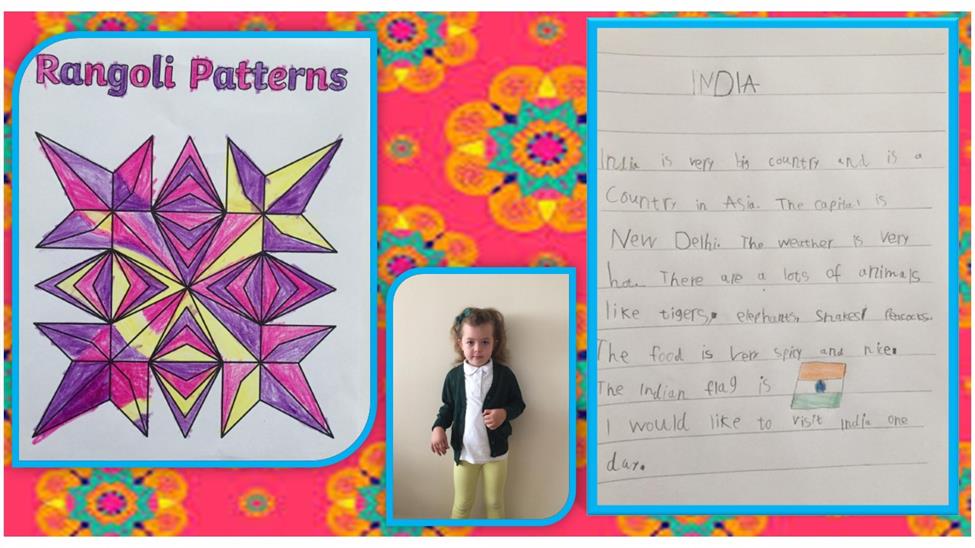 Rangoli Patterns
INDIA
India is very big country and is a
Country in Asia. The capital is
New Delhi. The weather is very
There are a lots of animals
like tigers, elephants, snakes, Peacocks.
The food is very spicy and nice.
The Indian flag is
I would like to visit India one
day.